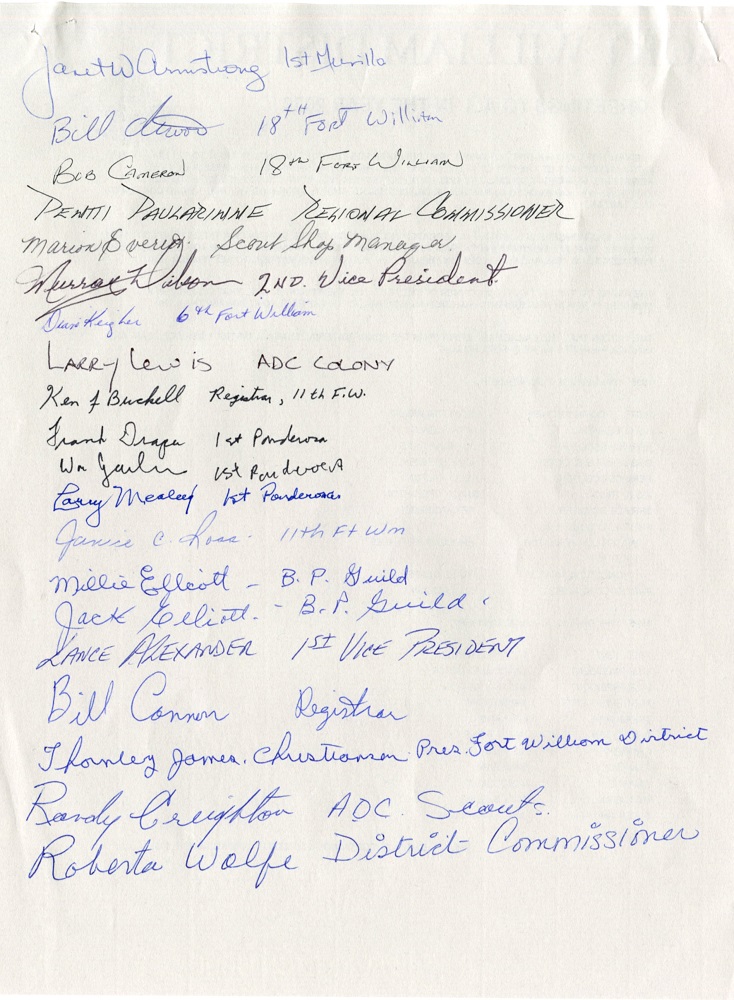 Janet W Armstrong 1st Murillo
Bill 18TH Fort William
Bob Cameron 18th Fort William
Pentti Paularinne Regional Commissioner
Marion Scout Shop Manager
Murray 2ND. Vice President
6th Fort William
Larry Lewis ADC COLONY
Ken J Buchell Registrar, 11th F.W.
Frank Draper 1st Ponderosa
Wm 1st Ponderosa
Larry Mealey 1st Ponderosa
Janice C. Ross. 11th Ft Wm
Millie Elliott - B.P. Guild
Jack Elliott. - B.P. Guild.
Lance Alexander 1ST Vice President
Bill Connon Registrar
Thornley James. Christianson. Pres. Fort William District
Randy Creighton ADC. Scouts.
Roberta Wolfe District Commissioner